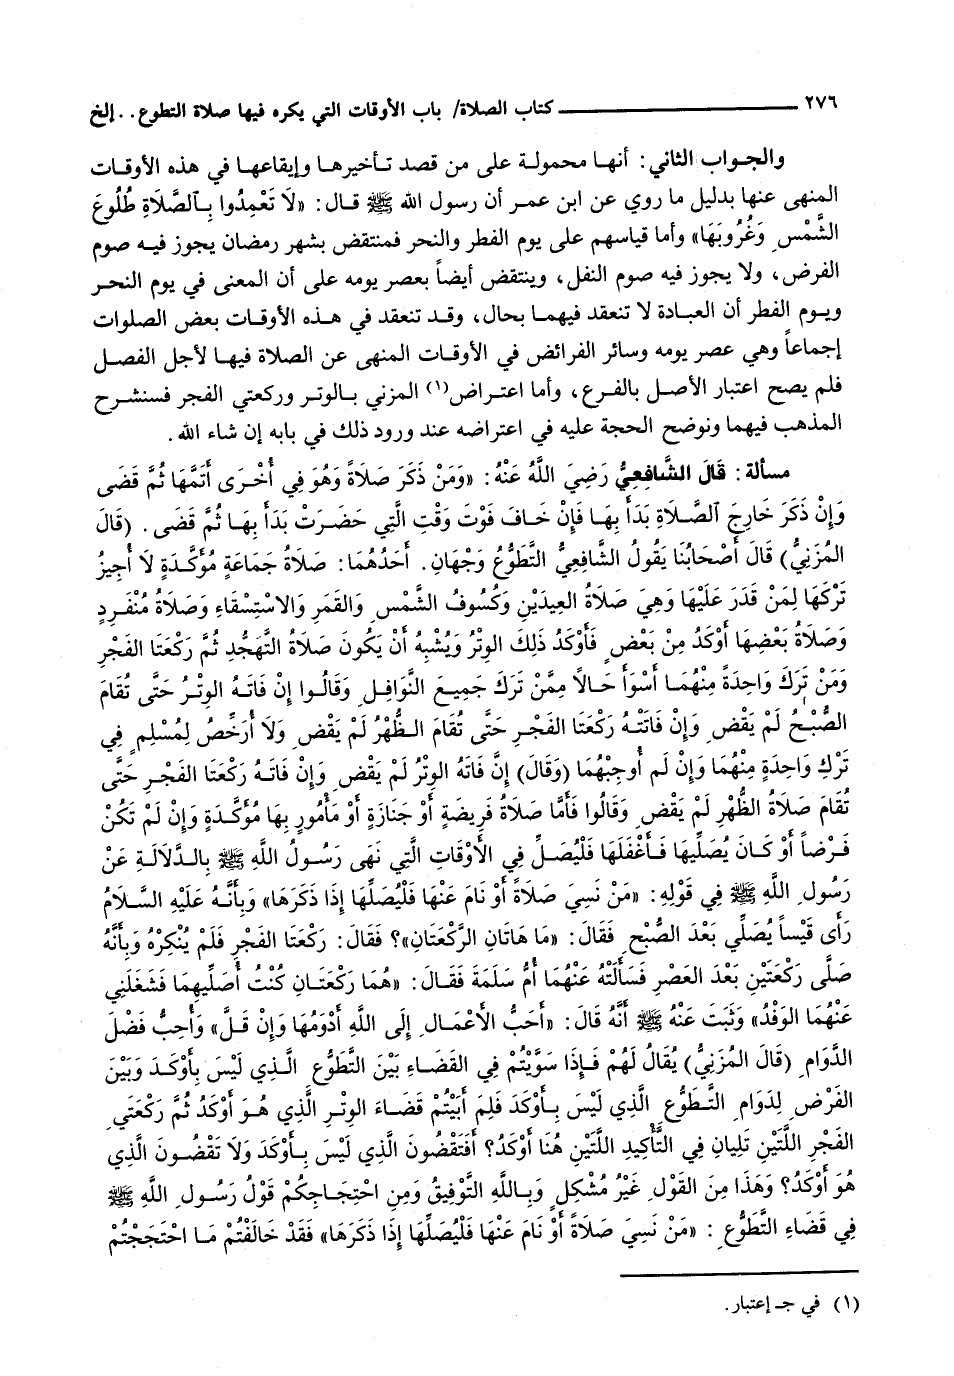 ٢٧٦ ــــــــــ كتاب الصلاة/ باب الأوقات التي يكره فيها صلاة التطوع.. إلخ
والجواب الثاني: أنها محمولة على من قصد تأخيرها وإيقاعها في هذه الأوقات
المنهى عنها بدليل ما روي عن ابن عمر أن رسول الله ﷺ قال: «لَا تَعْمِدُوا بِالصَّلَاةِ طُلُوعَ
الشَّمْسِ وَغُرُوبَهَا» وأما قياسهم على يوم الفطر والنحر فمنتقض بشهر رمضان يجوز فيه صوم
الفرض، ولا يجوز فيه صوم النفل، وينتقض أيضاً بعصر يومه على أن المعنى في يوم النحر
ويوم الفطر أن العبادة لا تنعقد فيهما بحال، وقد تنعقد في هذه الأوقات بعض الصلوات
إجماعاً وهي عصر يومه وسائر الفرائض في الأوقات المنهى عن الصلاة فيها لأجل الفصل
فلم يصح اعتبار الأصل بالفرع، وأما اعتراض(١) المزني بالوتر وركعتي الفجر فسنشرح
المذهب فيهما ونوضح الحجة عليه في اعتراضه عند ورود ذلك في بابه إن شاء الله.
مسألة: قَالَ الشَّافِعِيُّ رَضِيَ اللَّهُ عَنْهُ: «وَمَنْ ذَكَرَ صَلَاةً وَهُوَ فِي أُخْرَى أَتَمَّهَا ثُمَّ قَضَى
وَإِنْ ذَكَرَ خَارِجَ الصَّلَاةِ بَدَأَ بِهَا فَإِنْ خَافَ فَوْتَ وَقْتِ الَّتِي حَضَرَتْ بَدَأَ بِهَا ثُمَّ قَضَى. (قَالَ
المُزَنِيُّ) قَالَ أَصْحَابُنَا يَقُولُ الشَّافِعِيُّ التَّطَوُّعُ وَجْهَانِ. أَحَدُهُمَا: صَلَاةُ جَمَاعَةٍ مُؤَكَّدَةٍ لَا أُجِيزُ
تَرْكَهَا لِمَنْ قَدَرَ عَلَيْهَا وَهِيَ صَلَاةُ العِيدَيْنِ وَكُسُوفُ الشَّمْسِ وَالقَمَرِ وَالاسْتِسْقَاءِ وَصَلَاةُ مُنْفَرِدٍ
وَصَلَاةُ بَعْضِهَا أَوْكَدُ مِنْ بَعْضٍ فَأَوْكَدُ ذَلِكَ الوِتْرُ وَيُشْبِهُ أَنْ يَكُونَ صَلَاةُ التَّهَجُّدِ ثُمَّ رَكْعَتَا الفَجْرِ
وَمَنْ تَرَكَ وَاحِدَةً مِنْهُمَا أَسْوَأُ حَالاً مِمَّنْ تَرَكَ جَمِيعَ النَّوَافِلِ وَقَالُوا إِنْ فَاتَهُ الوِتْرُ حَتَّى تُقَامَ
الصُّبْحُ لَمْ يَقْضِ وَإِنْ فَاتَتْهُ رَكْعَتَا الفَجْرِ حَتَّى تُقَامَ الظُّهْرُ لَمْ يَقْضِ وَلَا أُرَخِّصُ لِمُسْلِمٍ فِي
تَرْكِ وَاحِدَةٍ مِنْهُمَا وَإِنْ لَمِ أُوجِبْهُمَا (وَقَالَ) إِنَّ فَاتَهُ الوِتْرُ لَمْ يَقْضِ وَإِنْ فَاتَهُ رَكْعَتَا الفَجْرِ حَتَّى
تُقَامَ صَلَاةُ الظُّهْرِ لَمْ يَقْضِ وَقَالُوا فَأَمَّا صَلَاةُ فَرِيضَةٍ أَوْ جَنَازَةٍ أَوْ مَأْمُورٍ بِهَا مُؤَكَّدَةٍ وَإِنْ لَمْ تَكُنْ
فَرْضاً أَوْ كَانَ يُصَلِّيهَا فَأَغْفَلَهَا فَلْيُصَلِّ فِي الأَوْقَاتِ الَّتِي نَهَى رَسُولُ اللَّهِ ﷺ بِالدَّلَالَةِ عَنْ
رَسُولِ اللَّهِ ﷺ فِي قَوْلِهِ: «مَنْ نَسِيَ صَلَاةً أَوْ نَامَ عَنْهَا فَلْيُصَلِّهَا إِذَا ذَكَرَهَا» وَبِأَنَّهُ عَلَيْهِ السَّلَامُ
رَأَى قَيْساً يُصَلِّي بَعْدَ الصُّبْحِ فَقَالَ: «مَا هَاتَانِ الرَّكْعَتَانِ»؟ فَقَالَ: رَكْعَتَا الفَجْرِ فَلَمْ يُنْكِرْهُ وَبِأَنَّهُ
صَلَّى رَكْعَتَيْنِ بَعْدَ العَصْرِ فَسَأَلَتْهُ عَنْهُمَا أُمُّ سَلَمَةَ فَقَالَ: «هُمَا رَكْعَتَانِ كُنْتُ أُصَلِّيهِمَا فَشَغَلَنِي
عَنْهُمَا الوَفْدُ» وَثَبَتَ عَنْهُ ﷺ أَنَّهُ قَالَ: «أَحَبُّ الأَعْمَالِ إِلَى اللَّهِ أَدْوَمُهَا وَإِنْ قَلَّ» وَأُحِبُّ فَضْلَ
الدَّوَامِ (قَالَ المُزَنِيُّ) يُقَالُ لَهُمْ فَإِذَا سَوَّيْتُمْ فِي القَضَاءِ بَيْنَ التَّطَوُّعِ الَّذِي لَيْسَ بِأَوْكَدَ وَبَيْنَ
الفَرْضِ لِدَوَامِ التَّطَوُّعِ الَّذِي لَيْسَ بِأَوْكَدَ فَلِمَ أَبَيْتُمْ قَضَاءَ الوِتْرِ الَّذِي هُوَ أَوْكَدُ ثُمَّ رَكْعَتَيِ
الفَجْرِ اللَّتَيْنِ تَلِيَانِ فِي التَّأْكِيدِ اللَّتَيْنِ هُنَا أَوْكَدُ؟ أَفَتَقْضُونَ الَّذِي لَيْسَ بِأَوْكَدَ وَلَا تَقْضُونَ الَّذِي
هُوَ أَوْكَدُ؟ وَهَذَا مِنَ القَوْلِ غَيْرُ مُشْكِلٍ وَبِاللَّهِ التَّوْفِيقُ وَمِنِ احْتِجَاجِكُمْ قَوْلُ رَسُولِ اللَّهِ ﷺ
فِي قَضَاءِ التَّطَوُّعِ: «مَنْ نَسِيَ صَلَاةً أَوْ نَامَ عَنْهَا فَلْيُصَلِّهَا إِذَا ذَكَرَهَا» فَقَدْ خَالَفْتُمْ مَا احْتَجَجْتُمْ
(١) في جـ إعتبار.